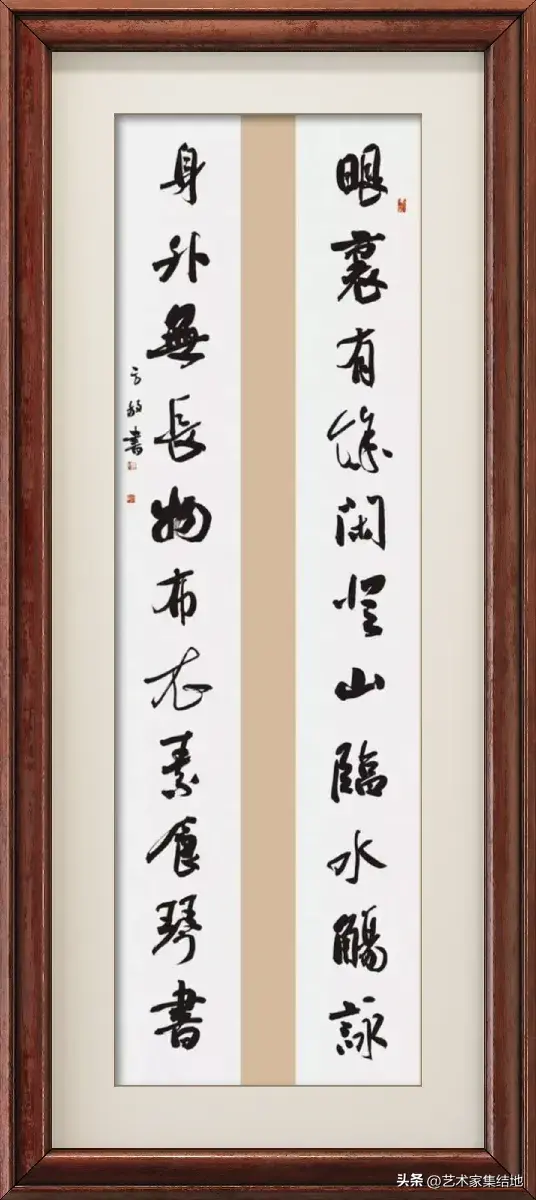 眼裏有餘闲登山臨水觴詠
身外無長物布衣素食琴書
方放書
头条@艺术家集结地